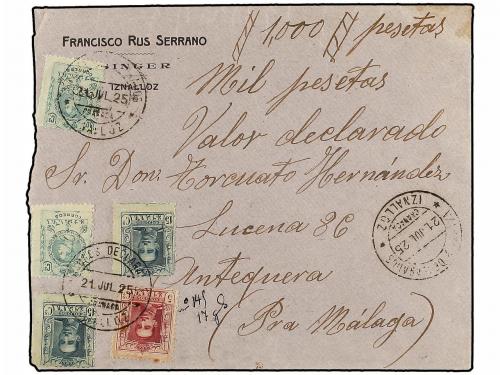 // 1,000 // pesetas
FRANCISCO RUS SERRANO
SINGER
IZNALLOZ
Mil pesetas
Valor declarado
Sr. Don Torcuato Hernández
Lucena 36
Antequera
(Pra Málaga)
21 JUL 25
IZNALLOZ
21 JUL 25
IZNALLOZ
21 JUL. 25
17 g